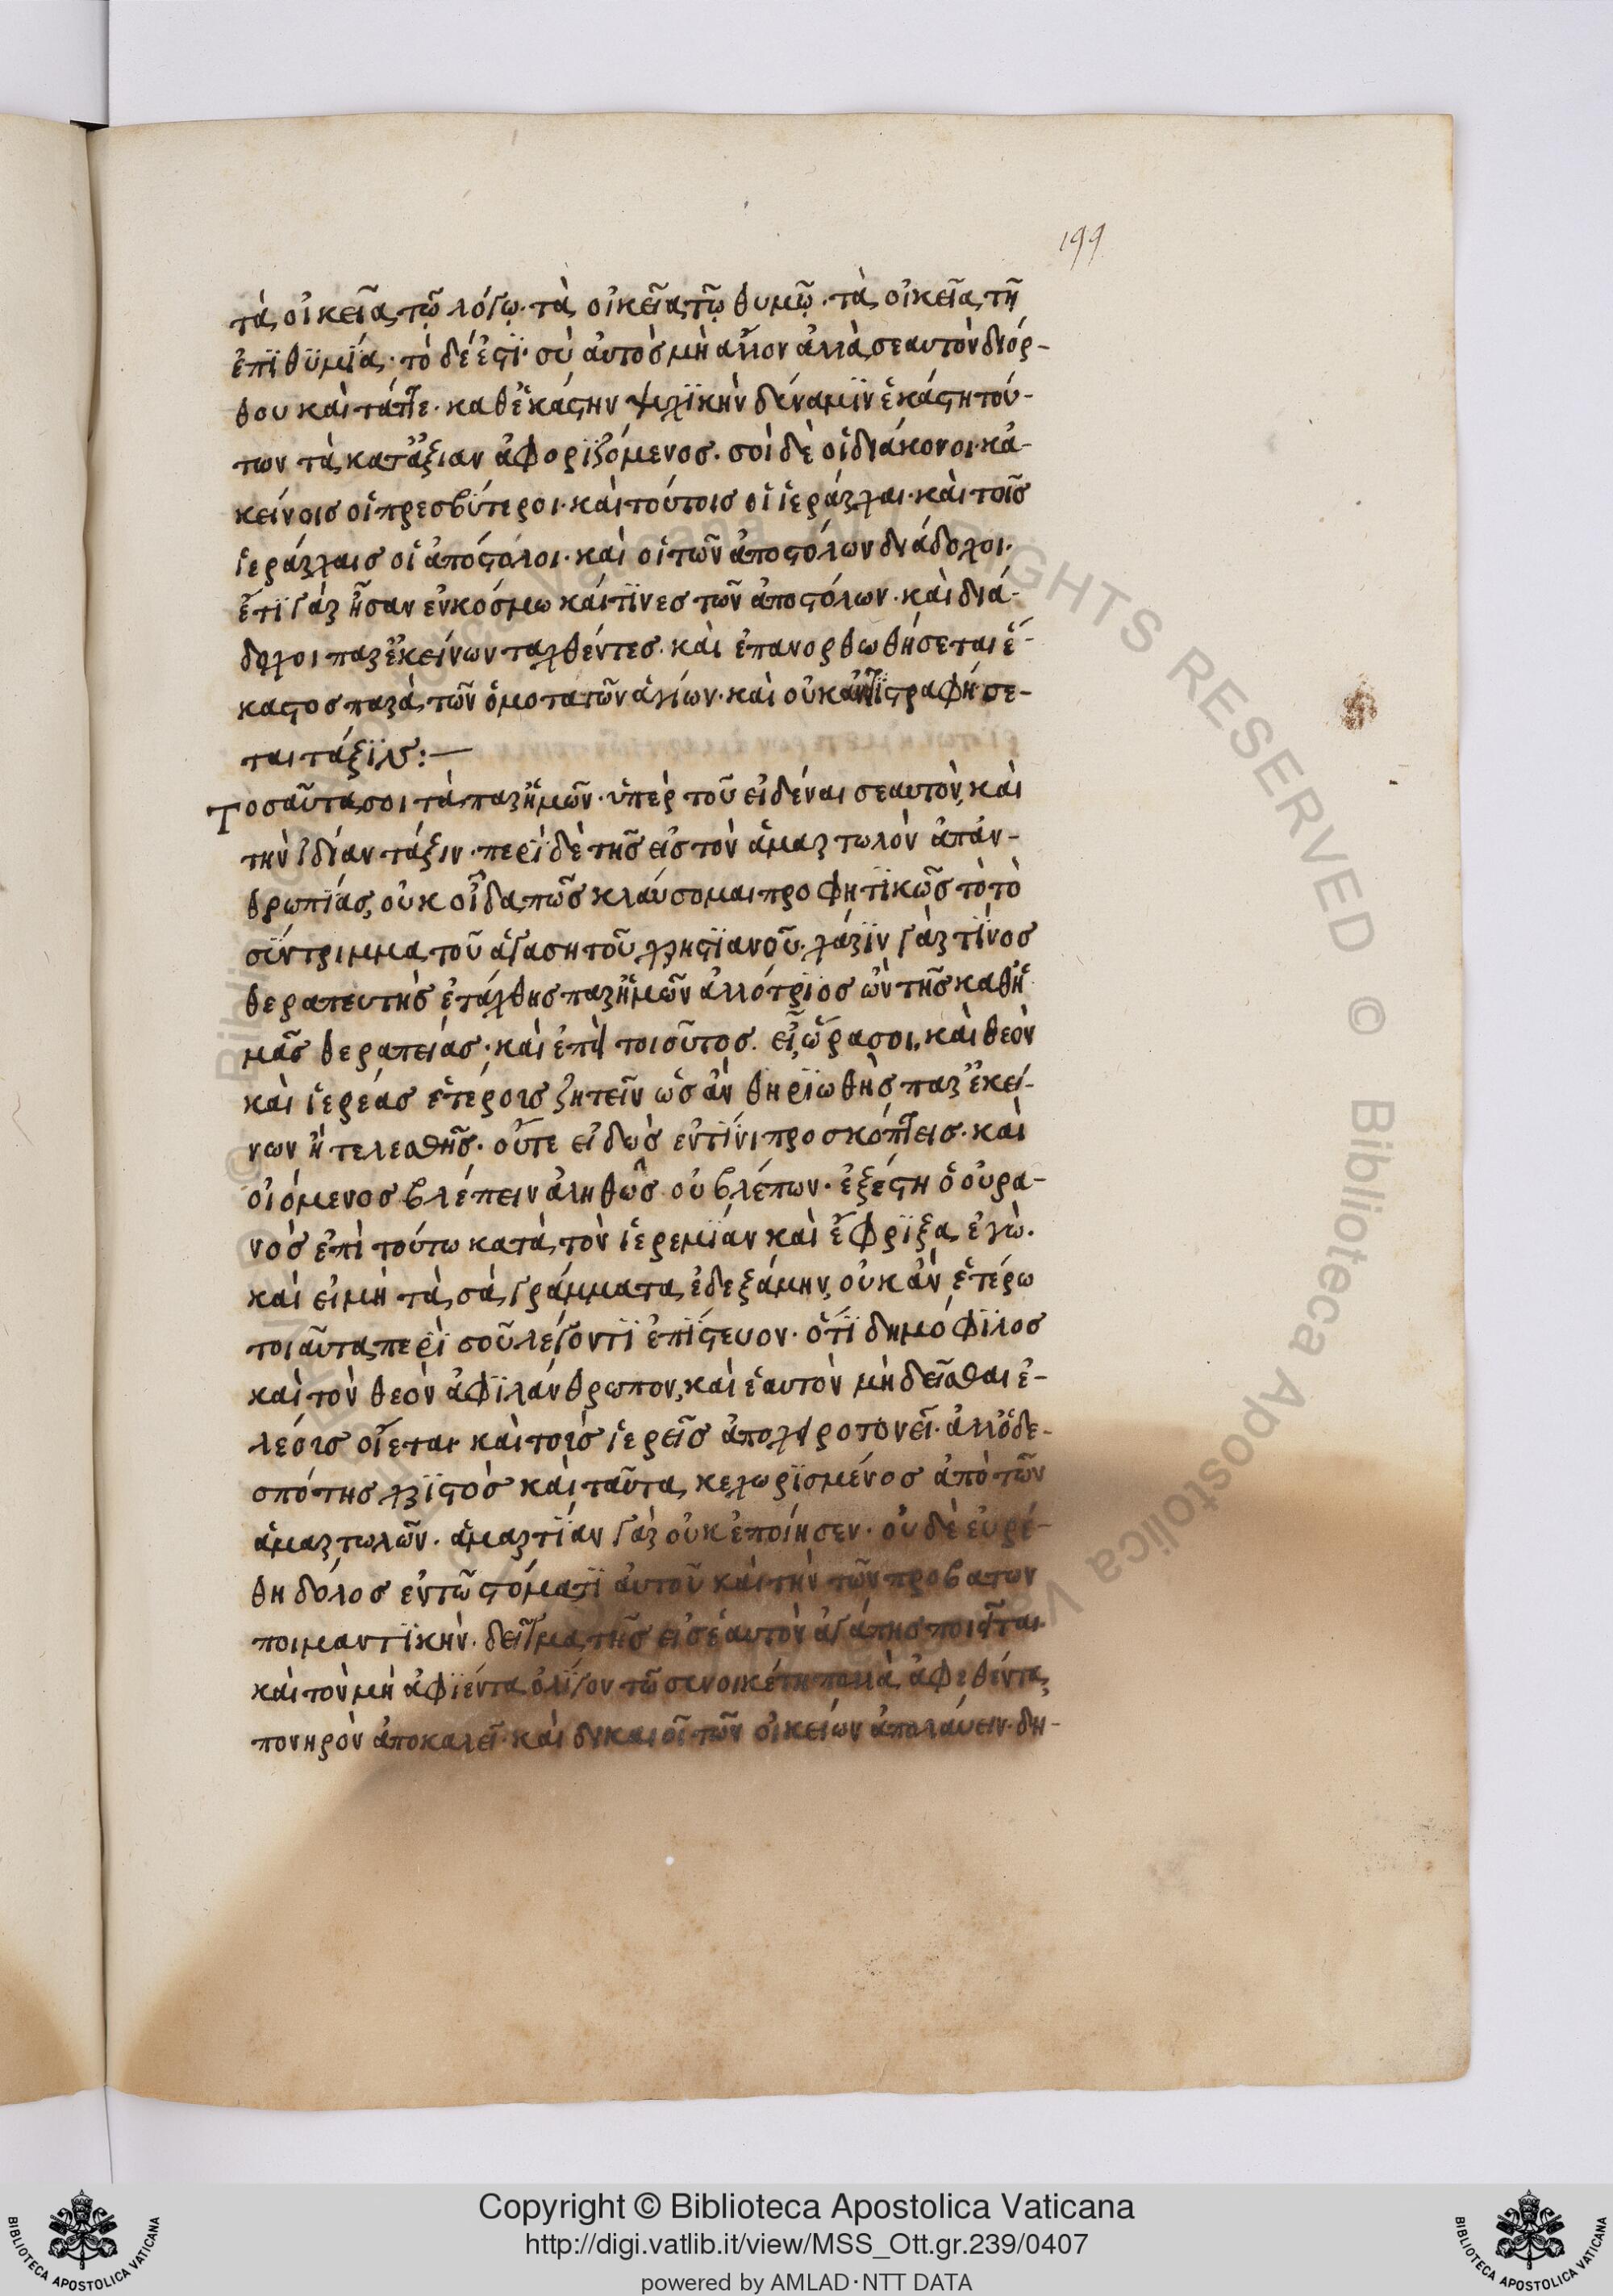 199
τὰ οἰκεῖα τῷ λόγῳ· τὰ οἰκεῖα τῷ θυμῷ· τὰ οἰκεῖα τῇ
ἐπϊθϋμΐα· τὸ δέ ἐστϊ· σὺ ἀυτὸς μὴ ἄλλον ἀλλὰ σεαυτὸν διόρ-
θου καὶ τάττε· καθ ἑκάστην ψυχϊκὴν δύναμϊν ἑκάστη τού-
των τὰ κατ ἀξιαν ἀφορϊζόμενος. σοὶ δὲ οἱ διάκονοι· κἀ-
κείνοις οἱ πρεσβύτεροι· καὶ τούτοις οἱ ἱεράρχαι· καὶ τοῖς
ἱεράρχαις οἱ ἀπόστολοι· καὶ οἱ τῶν ἀποστόλων διάδοχοι·
ἔτϊ γάρ ἦσαν ἐν κόσμω κάι τϊνες τῶν ἀποστόλων· καὶ διά-
δοχοι παρ ἐκείνων ταχθέντες· καὶ ἐπανορθωθήσεται ἕ-
καστος παρὰ τῶν ὁμοταγῶν ἁγίων· καὶ οὐκ ἀντϊστραφήσε-
ται τάξϊς:—
Τοσαῦτα σοι τὰ παρ ἡμῶν· ὑπὲρ τοῦ εἰδέναι σεαυτὸν, καὶ
τὴν ἰδίαν τάξιν· περὶ δὲ τῆς εἰς τὸν ἁμαρτωλὸν ἀπάν-
θρωπϊάς, οὐκ οἶδα πῶς κλαύσομαι προφητϊκῶς τὸ τὸ
σύντριμμα τοῦ ἀγαπητοῦ χρηστϊανοῦ· χάρϊν γάρ τΐνος
θεραπευτὴς ἐτάχθης παρ ἡμῶν ἀλλότρϊος ὢν τῆς καθ ἡ-
μᾶς θεραπείας· καὶ ἐπεὶ τοιοῦτος εἶ, ὥρα σοι, καὶ θεὸν
καὶ ἱερέας ἑτέροις ζητεῖν ὡς ἀν θηρϊωθὴς παρ ἐκεί-
νων ἢ τελεσθῆς· οὔτε εἰδὼς ἐν τίνι προσκόπτεις· καὶ
οἰόμενος βλέπειν ἀληθῶς οὐ βλέπων· ἐξέστη ὁ οὐρα-
νὸς ἐπὶ τούτω κατὰ τὸν ἱερεμϊάν καὶ ἔφρϊξα ἐγὼ.
καὶ εἰ μὴ τὰ σὰ γράμματα ἐδεξάμην, οὐκ ἀν ἑτέρω
τοιαῦτα περὶ σοῦ λέγοντϊ ἐπίστευον· ὅτϊ δημόφϊλος
καὶ τὸν θεὸν ἀφϊλάνθρωπον, καὶ ἑαυτὸν μὴ δεῖσθαι ἐ-
λέοις οἴεται καὶ τοὶς ἱερεῖς ἀποχειροτονεῖ· ἀλλ ὁ δε-
σπότης χρϊστὸς καὶ ταῦτα κεχωρϊσμένος ἀπὸ τῶν
ἁμαρτωλῶν. ἁμαρτΐαν γάρ οὐκ ἐποίησεν· οὐδὲ εὑρέ-
θη δόλος ἐν τῶ στόματϊ ἀυτοῦ καὶ τὴν τῶν προβατων
ποιμαντϊκὴν· δεῖγμα τῆς εἰς ἑαυτὸν ἀγάπης ποιεῖται
καὶ τὸν μὴ ἀφϊέντα ὀλΐγον τῶ συνοικέτη πολλὰ ἀφεθέντα
πονηρὸν ἀποκαλεῖ· καὶ δικαιοῖ τῶν οἰκείων ἀπολάυειν· δη-
Copyright © Biblioteca Apostolica Vaticana
http://digi.vatlib.it/view/MSS_Ott.gr.239/0407
powered by AMLAD·NTT DATA